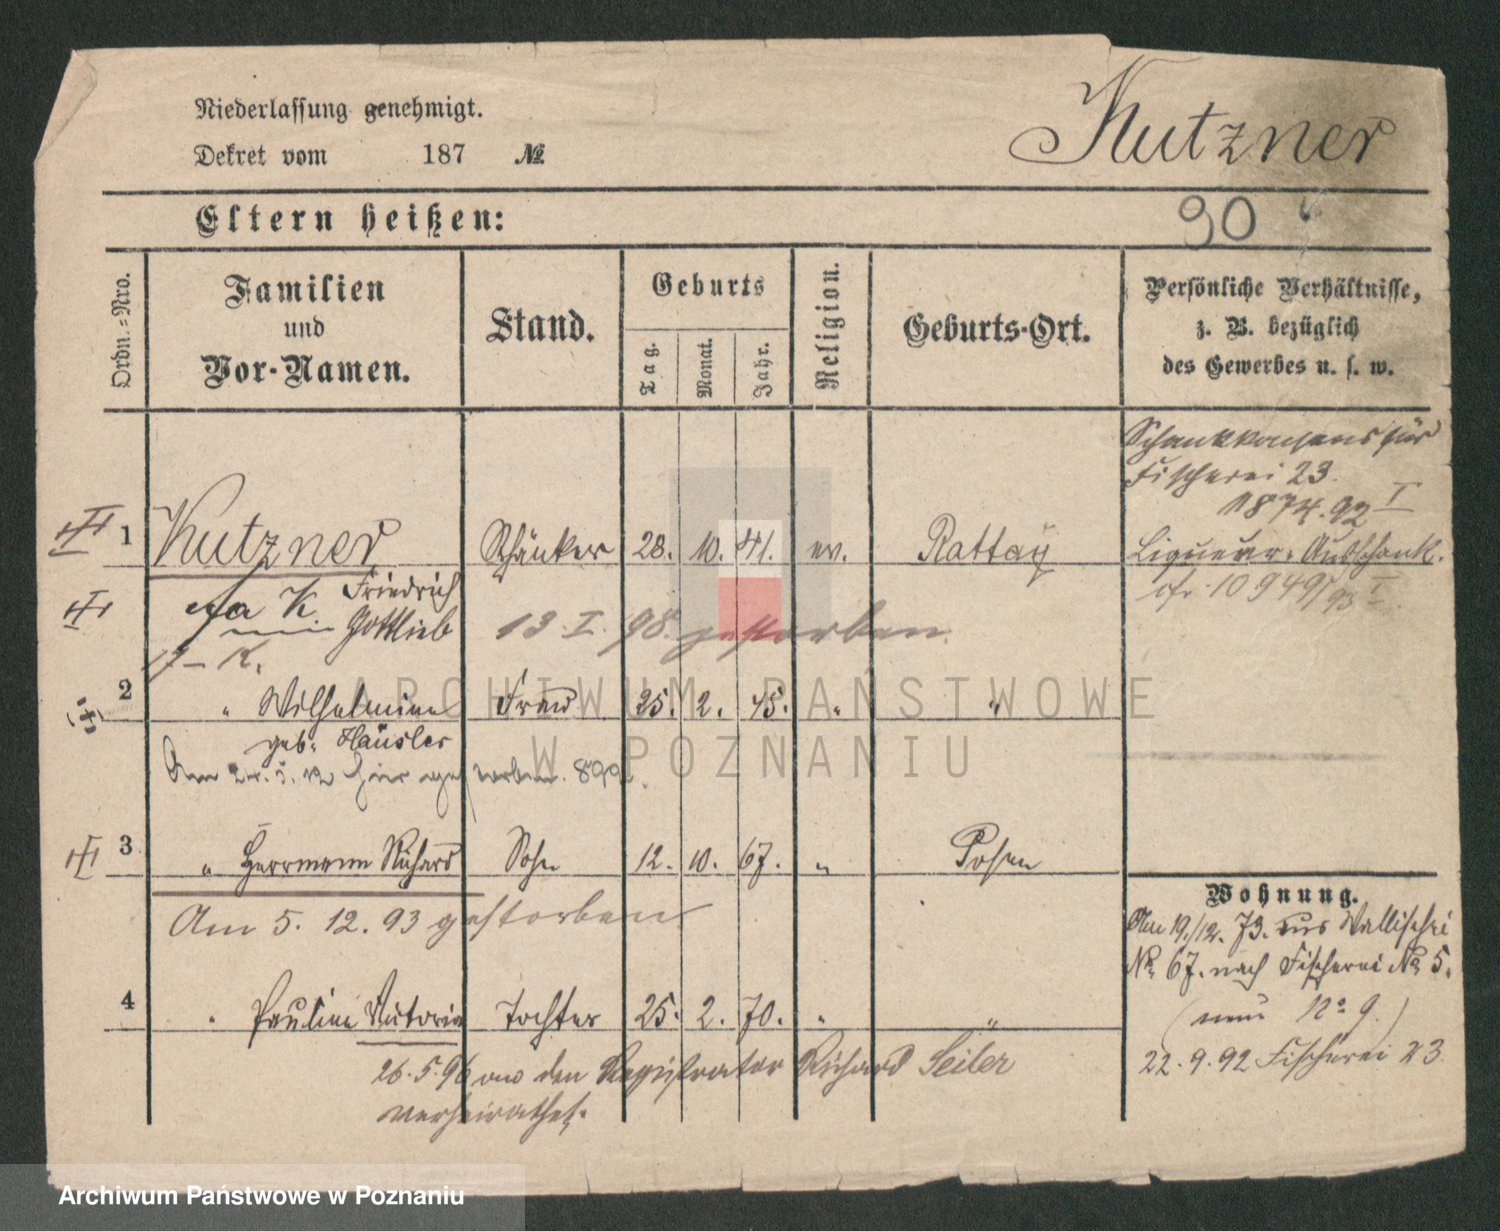 Niederlassung genehmigt.
Dekret vom 187 №
Kutzner
Eltern heißen:
90
Ordn.-Nro.
Familien
und
Vor-Namen.
Stand.
Geburts
Tag.
Monat.
Jahr.
Religion.
Geburts-Ort.
Persönliche Verhältnisse,
z. B. bezüglich
des Gewerbes u. s. w.
Schankkonsens für
Fischerei 23.
1874.92 I
Liqueur-Ausschank.
cfr. 10949/93 I
1 Kutzner Schänker 28. 10. 41. ev. Rattay
K. Friedrich
Gottlieb
13. I. 98. gestorben.
2 " Wilhelmine Frau 25. 2. 45. " "
geb. Häusler
Am 24. 5. 12 hier gestorben. 899
3 " Herrmann Richard Sohn 12. 10. 67. " Posen
Am 5. 12. 93 gestorben
4 " Pauline Victoria Tochter 25. 2. 70. " "
26. 5. 96 an den Registrator Richard Seiler
verheirathet.
Wohnung.
Am 19./12. 73. aus Wallischei
No. 67. nach Fischerei No. 5.
(neu No 9.)
22. 9. 92 Fischerei 23.
ARCHIWUM PAŃSTWOWE
W POZNANIU
Archiwum Państwowe w Poznaniu